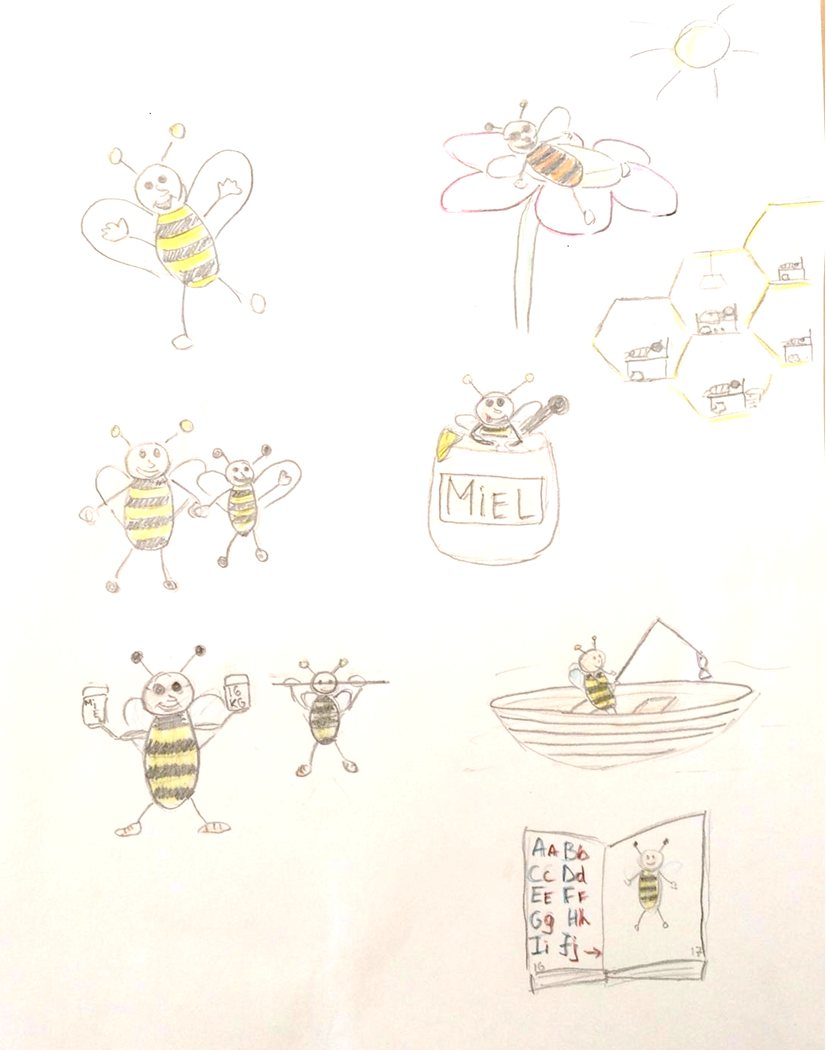 MiEL
MiE
10
KG
Aa Bb
Cc Dd
EE Ff
Gg Hh
Ii Jj →
16
17